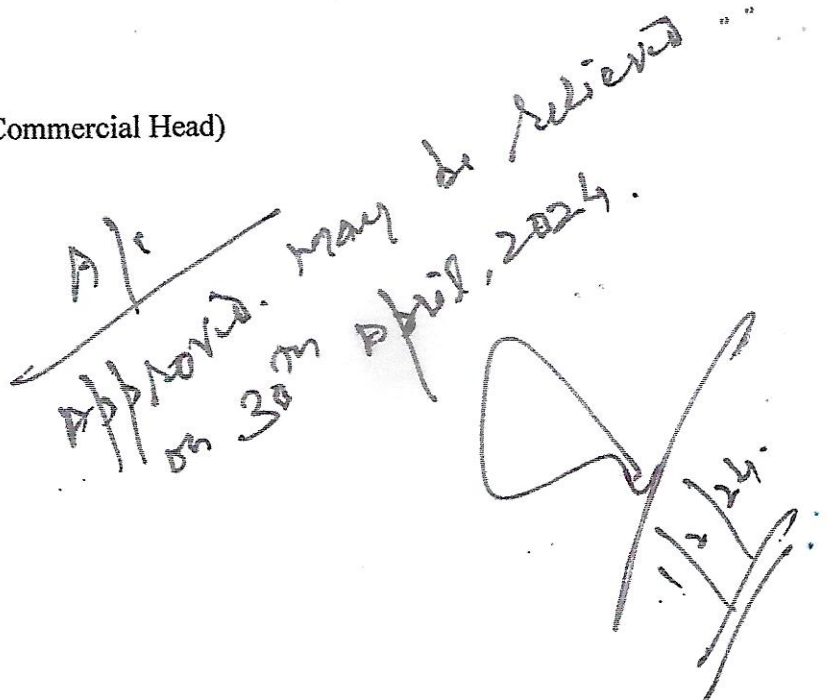 Commercial Head)
A/c
Approved. May be relieved
on 30th April, 2024.
1/2/24